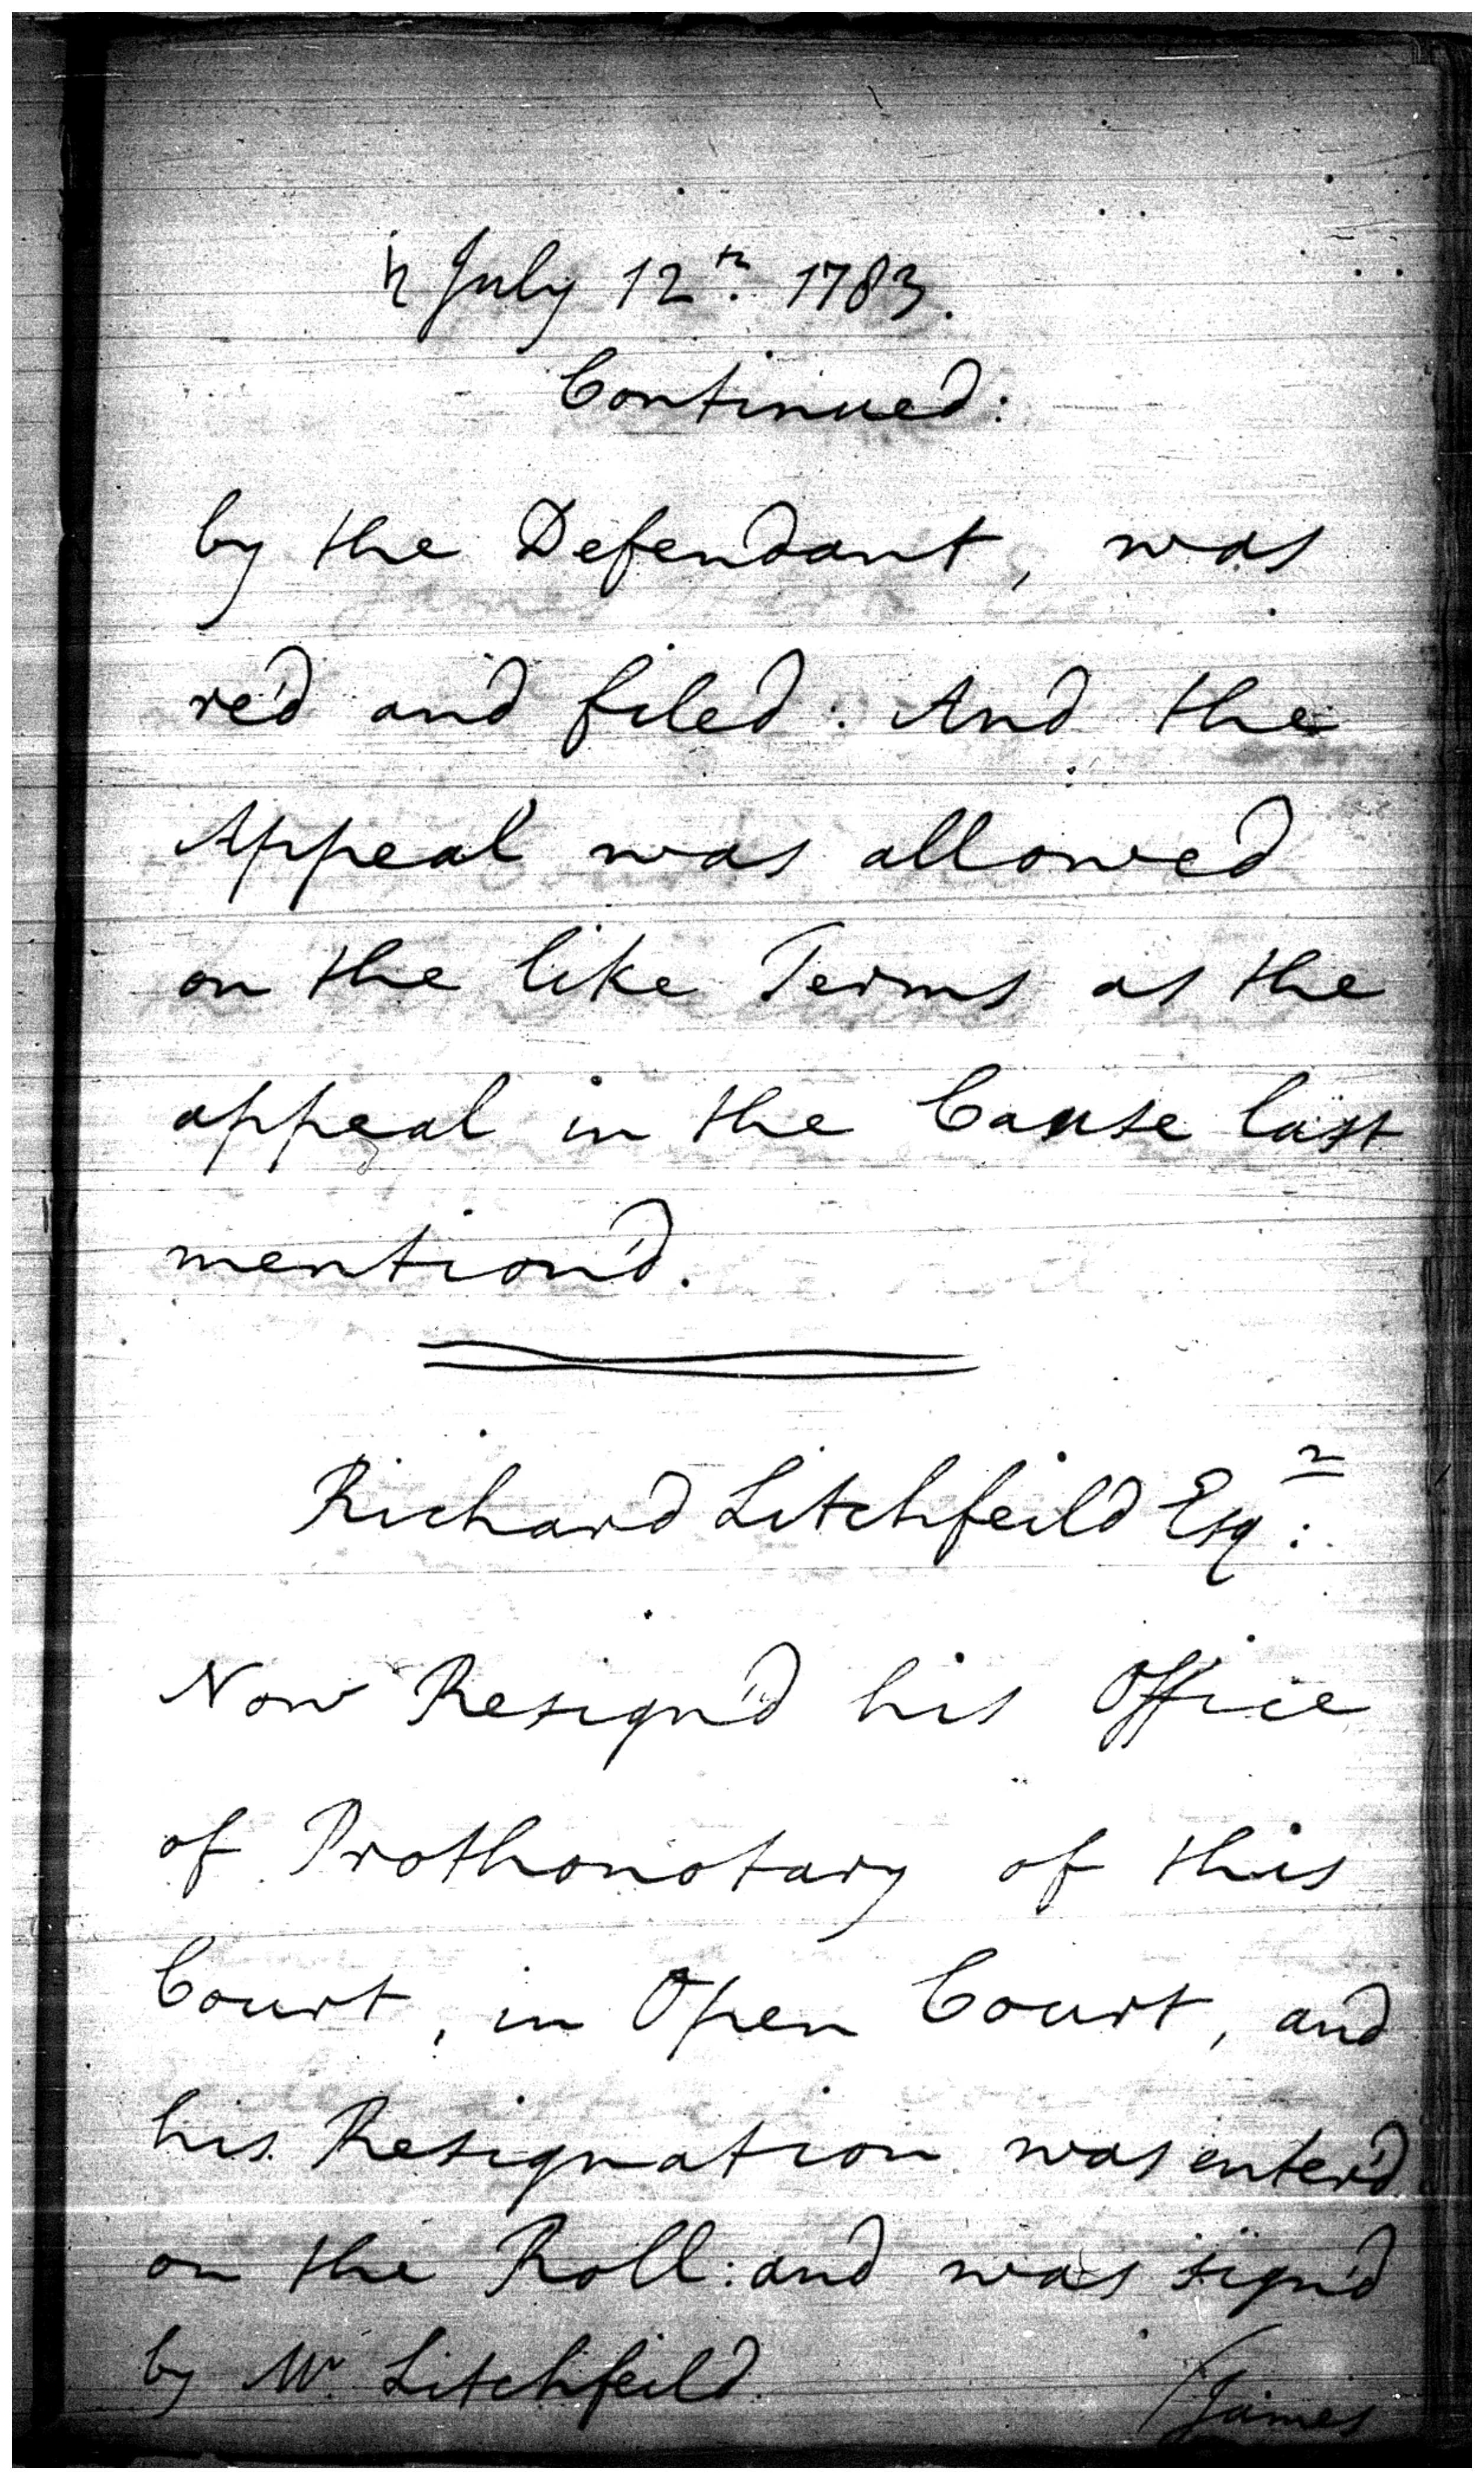 ♄ July 12th. 1783.
Continued:
by the Defendant, was
re'd and filed: And the
Appeal was allowed
on the like Terms as the
appeal in the Cause last
mention'd.
Richard Litchfeild Esqr:
Now Resign'd his Office
of Prothonotary of this
Court, in Open Court, and
his Resignation was enter'd
on the Roll: and was sign'd
by Mr. Litchfeild.
(James